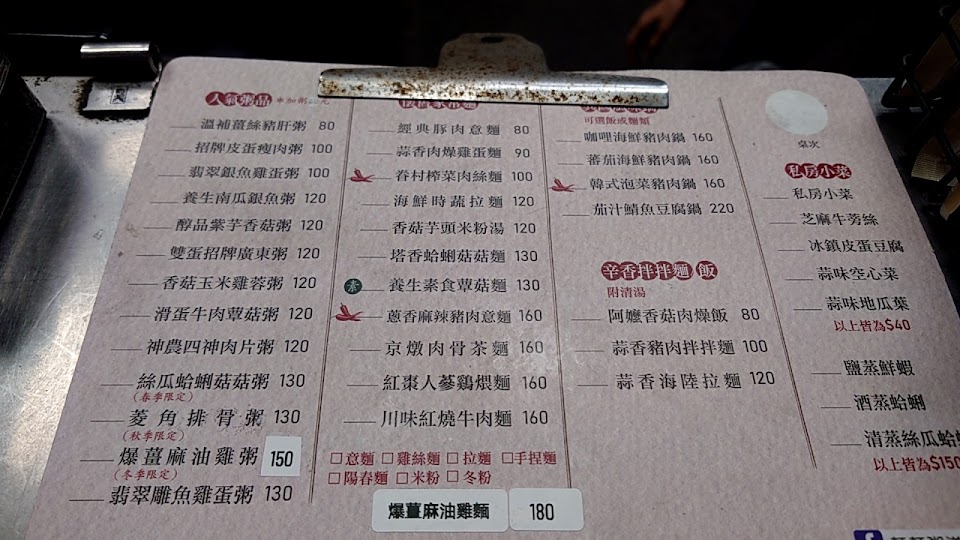 人氣粥品
溫補薑絲豬肝粥 80
招牌皮蛋瘦肉粥 100
翡翠銀魚雞蛋粥 100
養生南瓜銀魚粥 120
醇品紫芋香菇粥 120
雙蛋招牌廣東粥 120
香菇玉米雞蓉粥 120
滑蛋牛肉蕈菇粥 120
神農四神肉片粥 120
絲瓜蛤蜊菇菇粥 130
(春季限定)
菱角排骨粥 130
(秋季限定)
爆薑麻油雞粥 150
(冬季限定)
翡翠雕魚雞蛋粥 130
經典豚肉意麵 80
蒜香肉燥雞蛋麵 90
眷村榨菜肉絲麵 100
海鮮時蔬拉麵 120
香菇芋頭米粉湯 120
塔香蛤蜊菇菇麵 130
素 養生素食蕈菇麵 130
蔥香麻辣豬肉意麵 160
京燉肉骨茶麵 160
紅棗人蔘鷄煨麵 160
川味紅燒牛肉麵 160
□意麵 □雞絲麵 □拉麵 □手捏麵
□陽春麵 □米粉 □冬粉
爆薑麻油雞麵 180
可選飯或麵類
咖哩海鮮豬肉鍋 160
蕃茄海鮮豬肉鍋 160
韓式泡菜豬肉鍋 160
茄汁鯖魚豆腐鍋 220
辛香拌拌麵 飯
附清湯
阿嬤香菇肉燥飯 80
蒜香豬肉拌拌麵 100
蒜香海陸拉麵 120
桌次
私房小菜
私房小菜
芝麻牛蒡絲
冰鎮皮蛋豆腐
蒜味空心菜
蒜味地瓜葉
以上皆為$40
鹽蒸鮮蝦
酒蒸蛤蜊
清蒸絲瓜蛤蜊
以上皆為$150